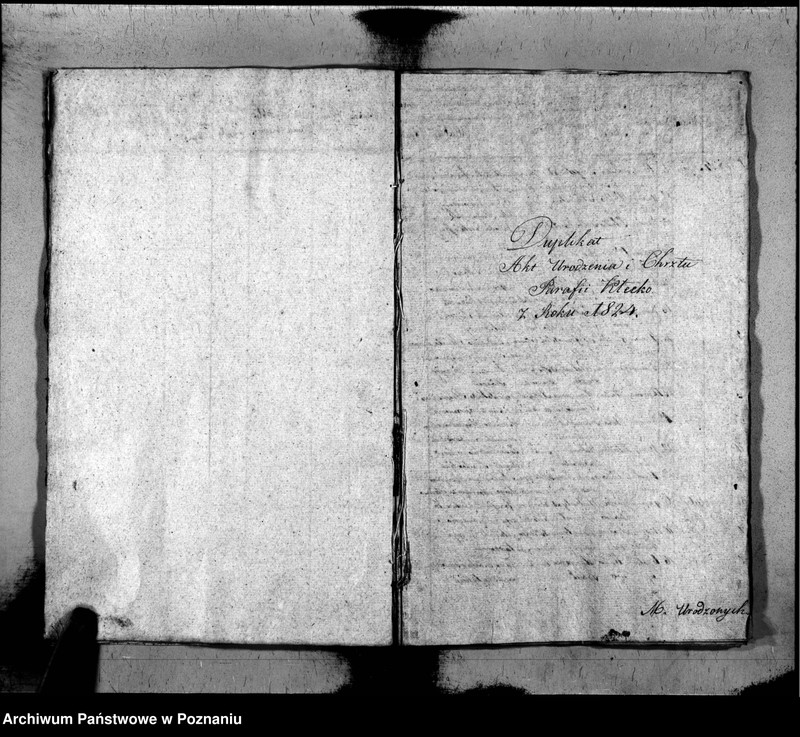 Duplikat
Akt Urodzenia i Chrztu
Parafii Kłecko
z Roku 1824.
M. Urodzonych
Archiwum Państwowe w Poznaniu